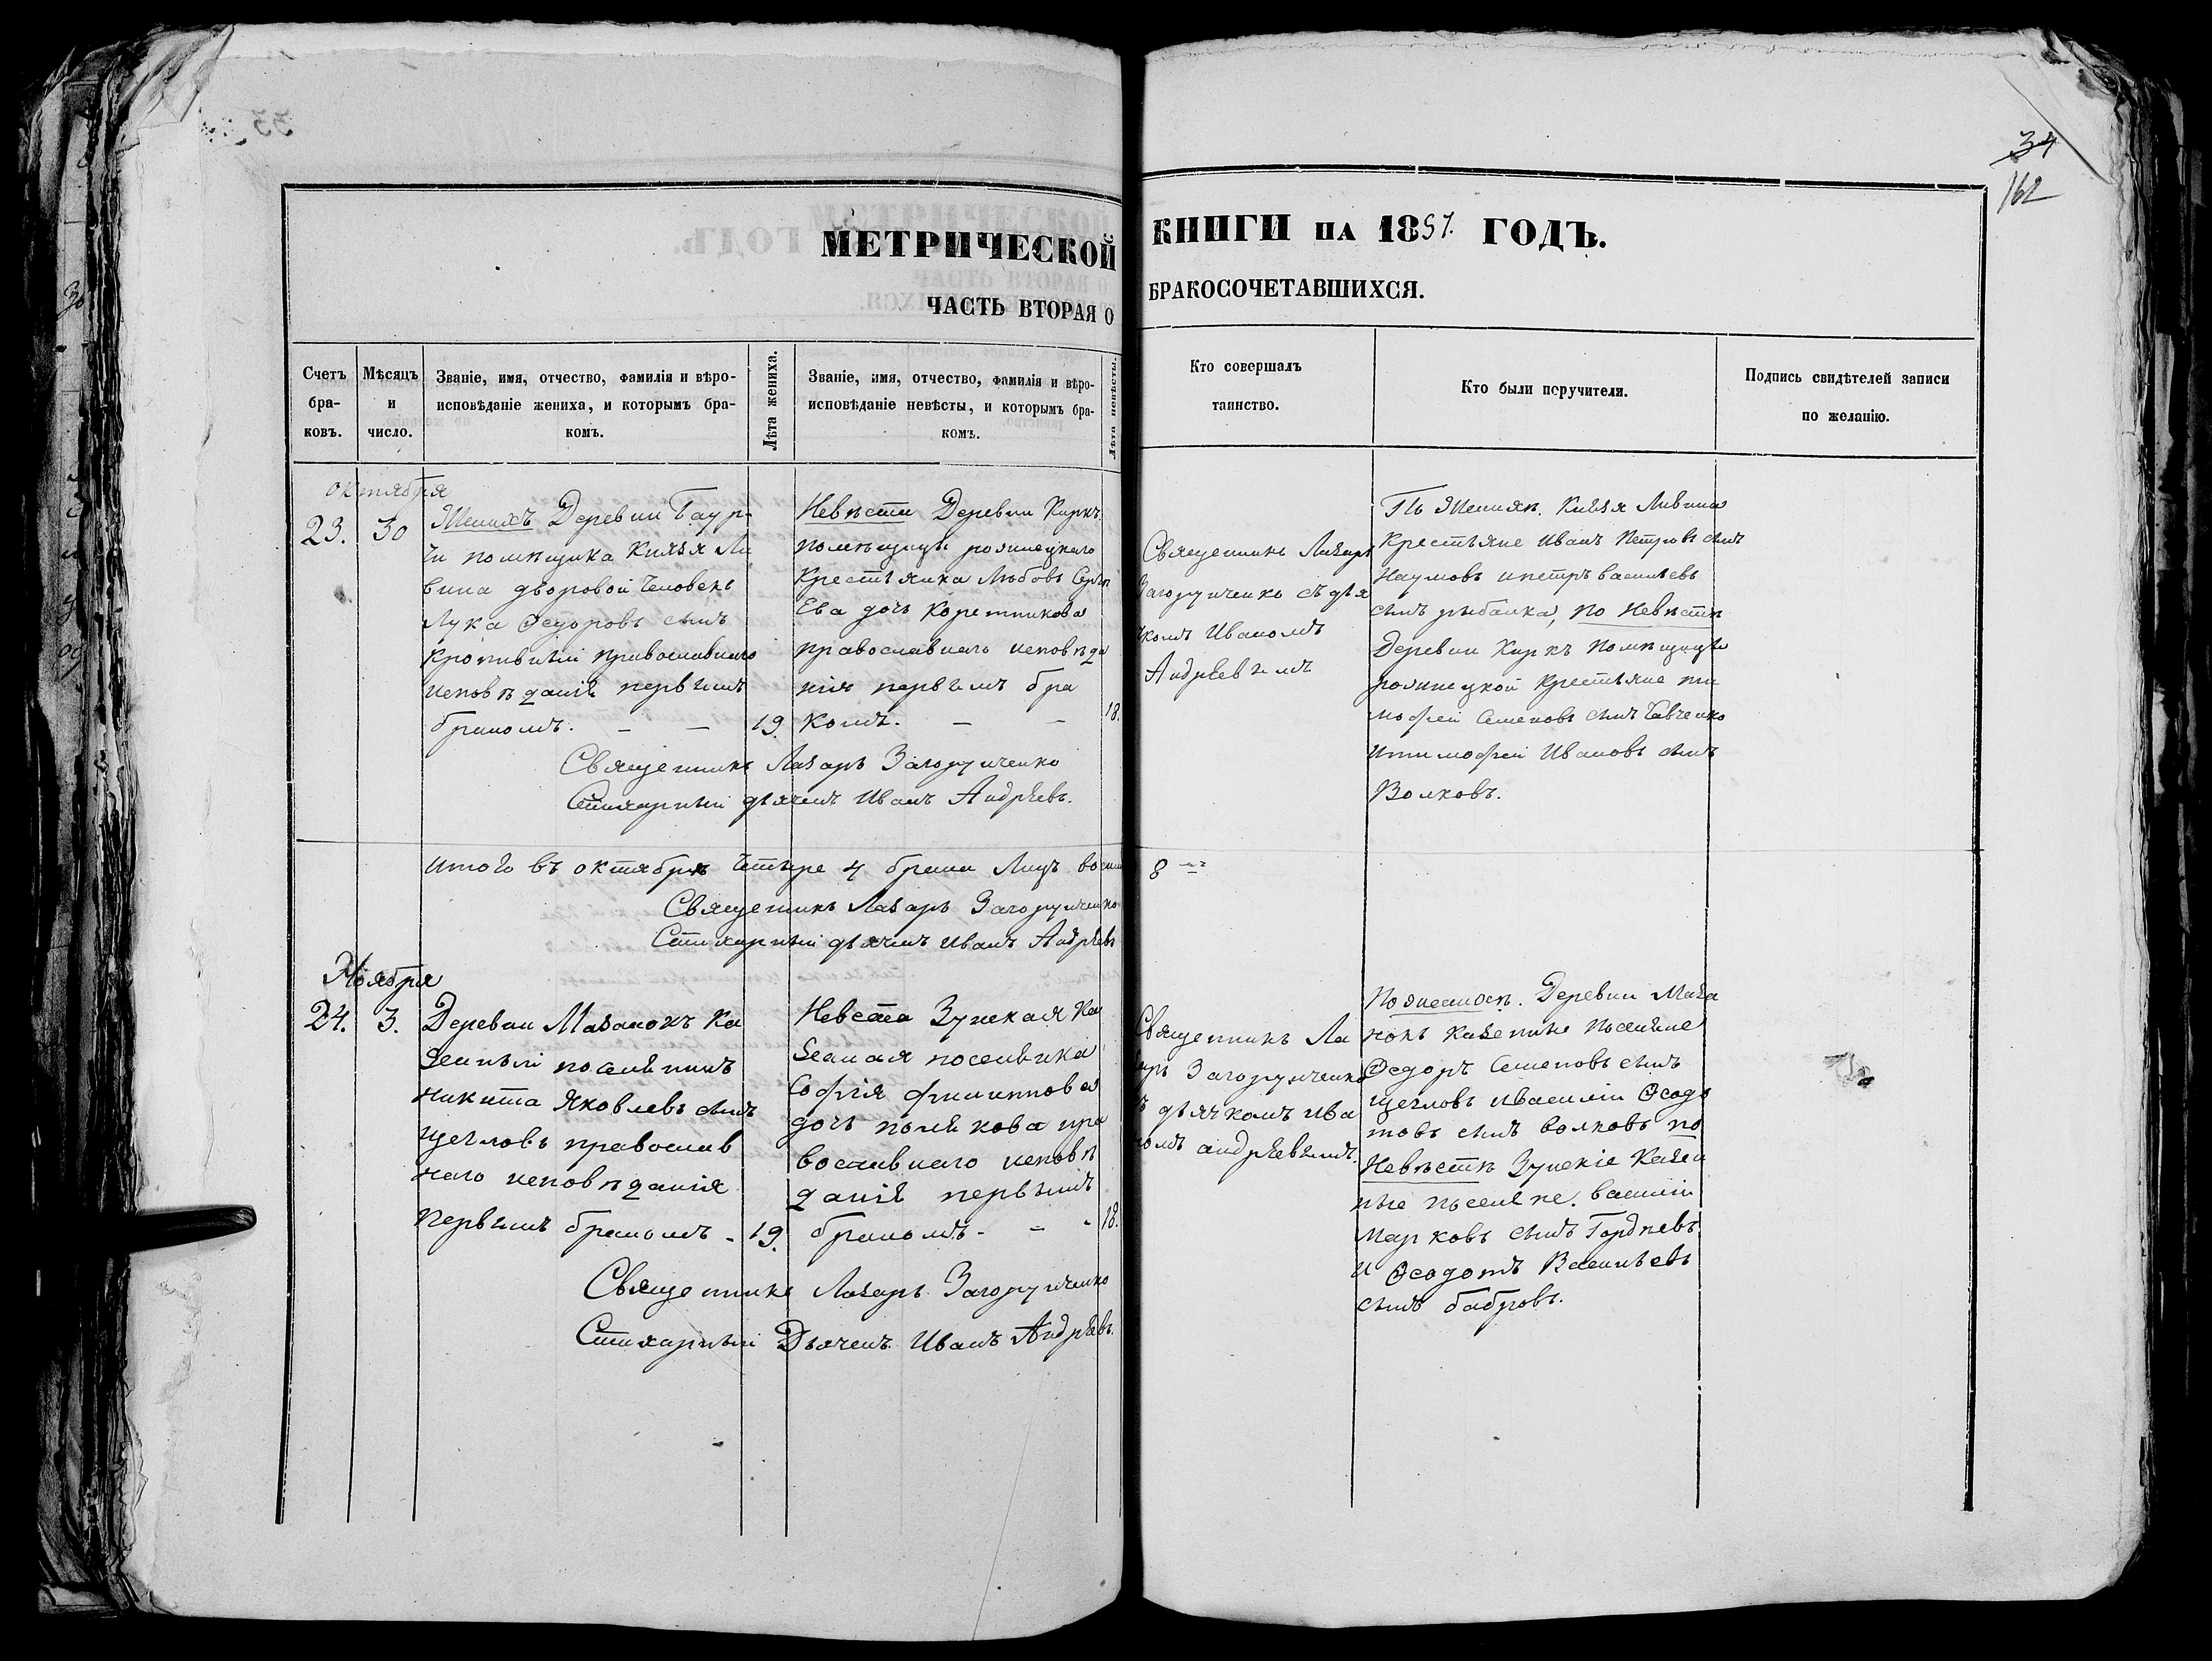 34
162
МЕТРИЧЕСКОЙ КНИГИ НА 1857. ГОДЪ.
ЧАСТЬ ВТОРАЯ О БРАКОСОЧЕТАВШИХСЯ.
Счетъ бра-ковъ.
Мѣсяцъ и число.
Званіе, имя, отчество, фамилія и вѣро-
исповѣданіе жениха, и которымъ бра-
комъ.
Лѣта жениха.
Званіе, имя, отчество, фамилія и вѣро-
исповѣданіе невѣсты, и которымъ бра-
комъ.
Лѣта невѣсты.
Кто совершалъ
таинство.
Кто были поручители.
Подпись свидѣтелей записи
по желанію.
октября
23. 30
Женихъ Деревни Таур-
чи помѣщика Князя Ли
вина дворовой человекъ
Лука Ѳедоровъ сынъ
Кропивный православнаго
исповѣданія первымъ
бракомъ. 19.
Невѣста Деревни Киркъ
помѣщицы
Крестьянка Любовь
Ева дочь Коретникова
православнаго исповѣда
нія первымъ бра
комъ. 18.
Священникъ Лазарь
Загорученко съ дья
чкомъ Иваномъ
Андрѣевымъ
По Женихѣ. Князя Ливина
Крестьяне Иванъ Петровъ сынъ
Наумовъ и петръ васильевъ
сынъ рыбалка, по Невѣстѣ
Деревни Киркъ Помѣщицы
Крестьяне ти
мофей Семеновъ сынъ Савченко
и тимофей Ивановъ сынъ
Волковъ.
Священникъ Лазарь Загорученко
Стихарный дьячекъ Иванъ Андрѣевъ.
Итого въ октябрѣ четыре 4 брака Лицъ восемь 8
Священникъ Лазарь Загорученко
Стихарный дьячекъ Иванъ Андрѣевъ
Ноября
24. 3.
Деревни Мазанокъ Ка
зенный поселянинъ
Никита Яковлевъ сынъ
Щегловъ православ
наго исповѣданія
Первымъ бракомъ - 19.
Невеста Зуйская Ка
зенная поселянка
Софія филиппова
дочь полякова пра
вославнаго исповѣ
данія первымъ
бракомъ - 18.
Священникъ Ла
зарь Загорученко
съ дьячкомъ Ива
номъ андрѣевымъ.
По женихѣ. Деревни Маза
нокъ Казенные поселяне
Ѳедоръ Семеновъ сынъ
щегловъ и василій Ѳеодо
товъ сынъ волковъ по
Невѣстѣ Зуйскіе Казен
ные поселяне. василій
Марковъ сынъ Гордѣевъ
и Ѳеодотъ Васильевъ
сынъ бобровъ.
Священникъ Лазарь Загорученко
Стихарный Дьячекъ Иванъ Андрѣевъ.